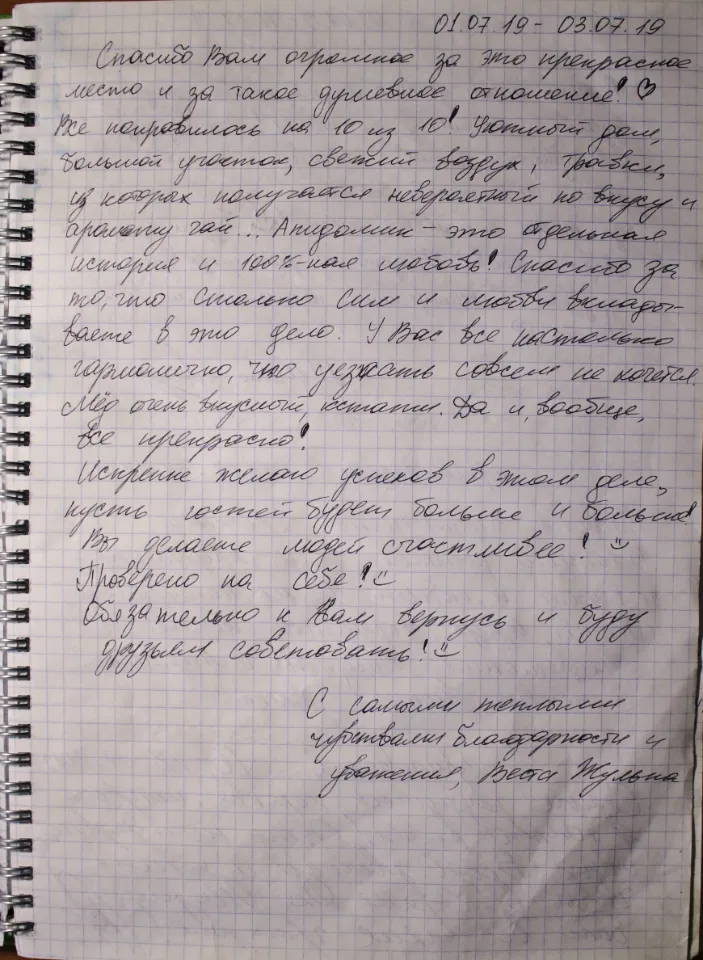 01.07.19 - 03.07.19
Спасибо Вам огромное за это прекрасное
место и за такое душевное отношение! ♡
Все понравилось на 10 из 10! Уютный дом,
большой участок, свежий воздух, травки,
из которых получается невероятный по вкусу и
аромату чай... Апидомик - это отдельная
история и 100%-ная любовь! Спасибо за
то, что столько сил и любви вклады-
ваете в это дело. У Вас все настолько
гармонично, что уезжать совсем не хочется.
Мёд очень вкусный, кстати. Да и, вообще,
все прекрасно!
Искренне желаю успехов в этом деле,
пусть гостей будет больше и больше!
Вы делаете людей счастливее! :)
Проверено на себе! :)
Обязательно к Вам вернусь и буду
друзьям советовать! :)
С самыми теплыми
чувствами благодарности и
уважения, Веста